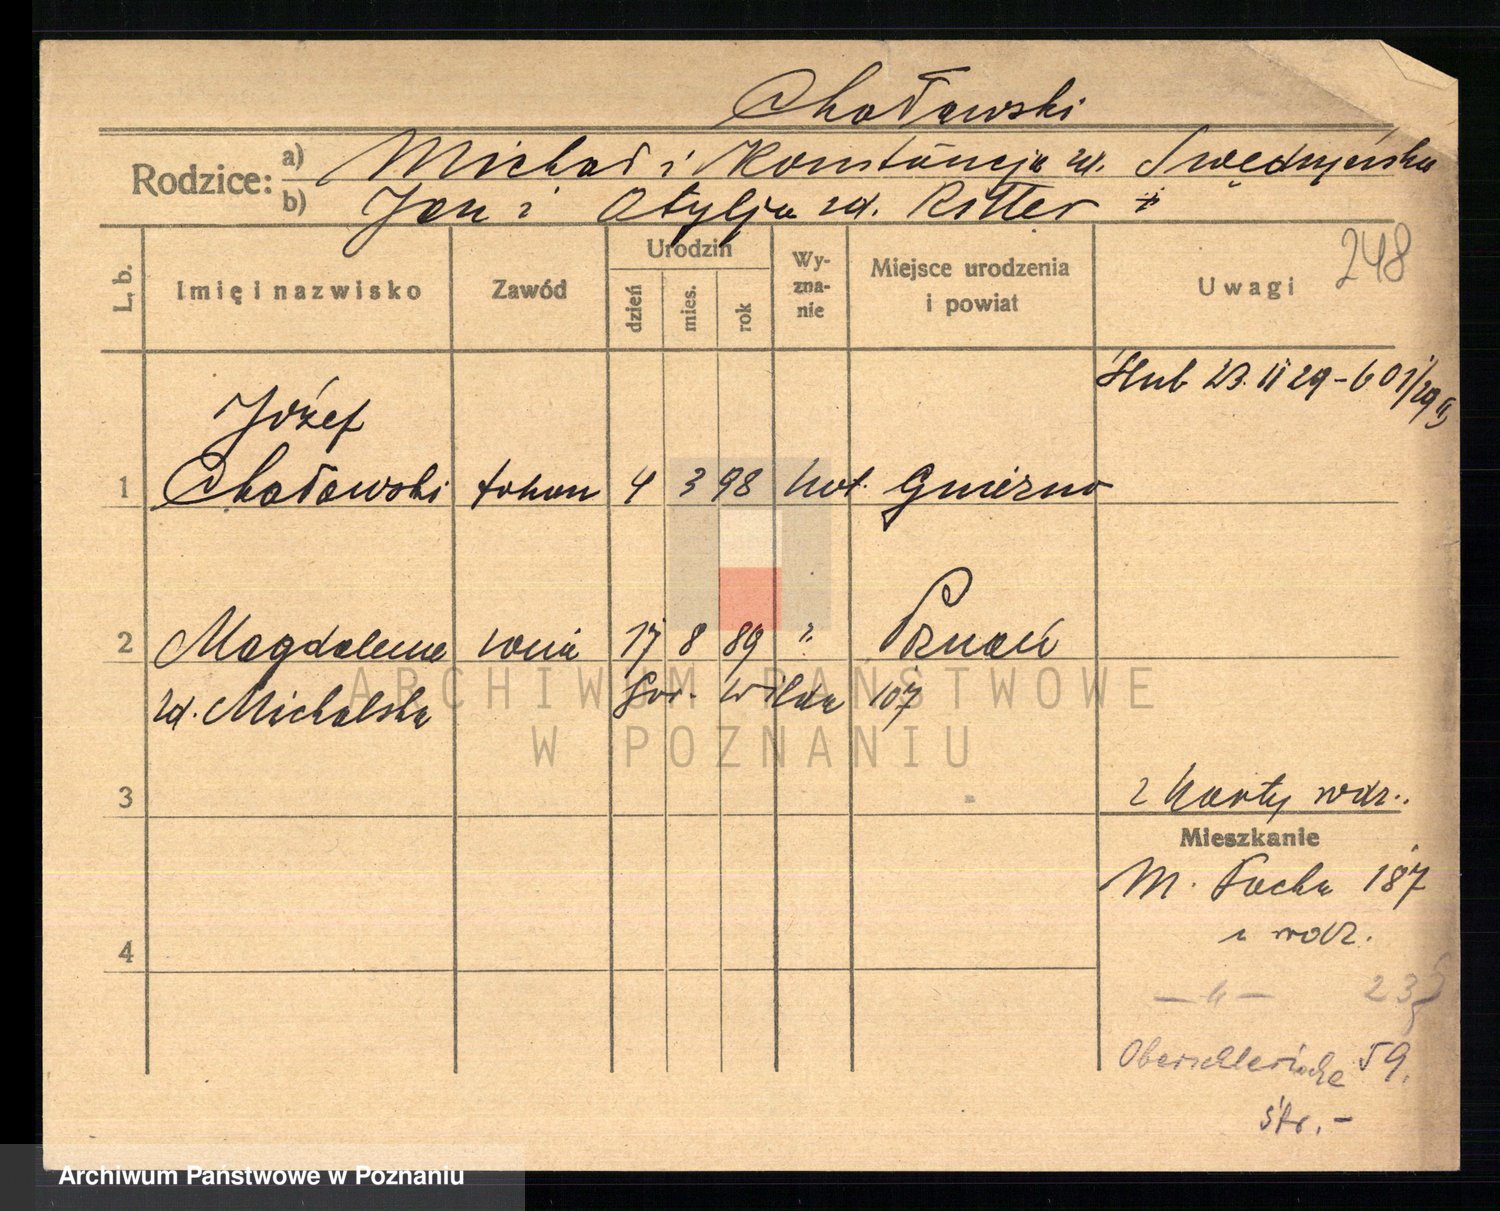 Chołowski
Rodzice: a) Michał i Konstancja zd. Swędzyńska
b) Jan i Otylja zd. Ritter
248
L. b. Imię i nazwisko Zawód Urodzin dzień mies. rok Wy-zna-nie Miejsce urodzenia i powiat Uwagi
Ślub 23. II 29 - 601/29
Józef
1 Chołowski tokarz 4 3 98 kat. Gniezno
2 Magdalena 17 8 89 " Poznań
zd. Michalska Gór. Wilda 107
3
2 karty rodz.
Mieszkanie
M. Focha 187
4
u rodz.
— " — 235
Oberschlesische 59.
Str. -
ARCHIWUM PAŃSTWOWE
W POZNANIU
Archiwum Państwowe w Poznaniu